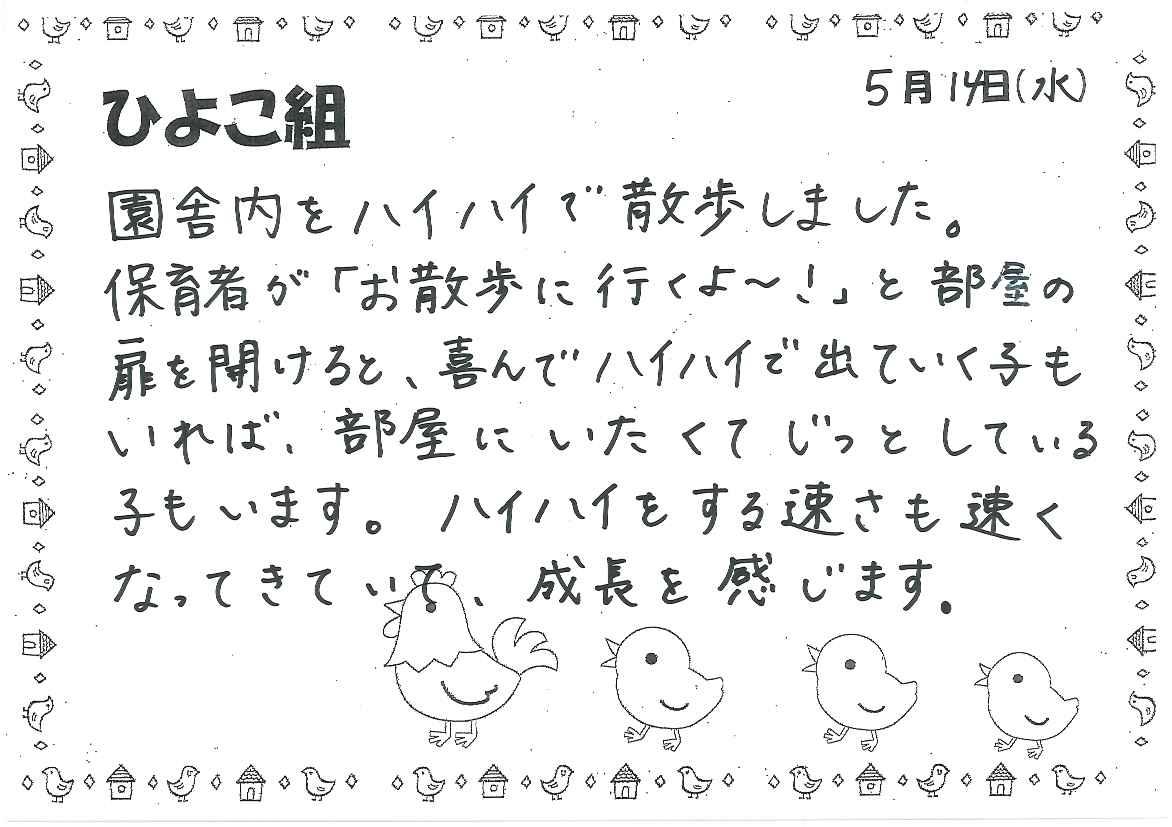 5月14日(水)
ひよこ組
園舎内をハイハイで散歩しました。
保育者が「お散歩に行くよ〜!」と部屋の
扉を開けると、喜んでハイハイで出ていく子も
いれば、部屋にいたくてじっとしている
子もいます。ハイハイをする速さも速く
なってきていて、成長を感じます。